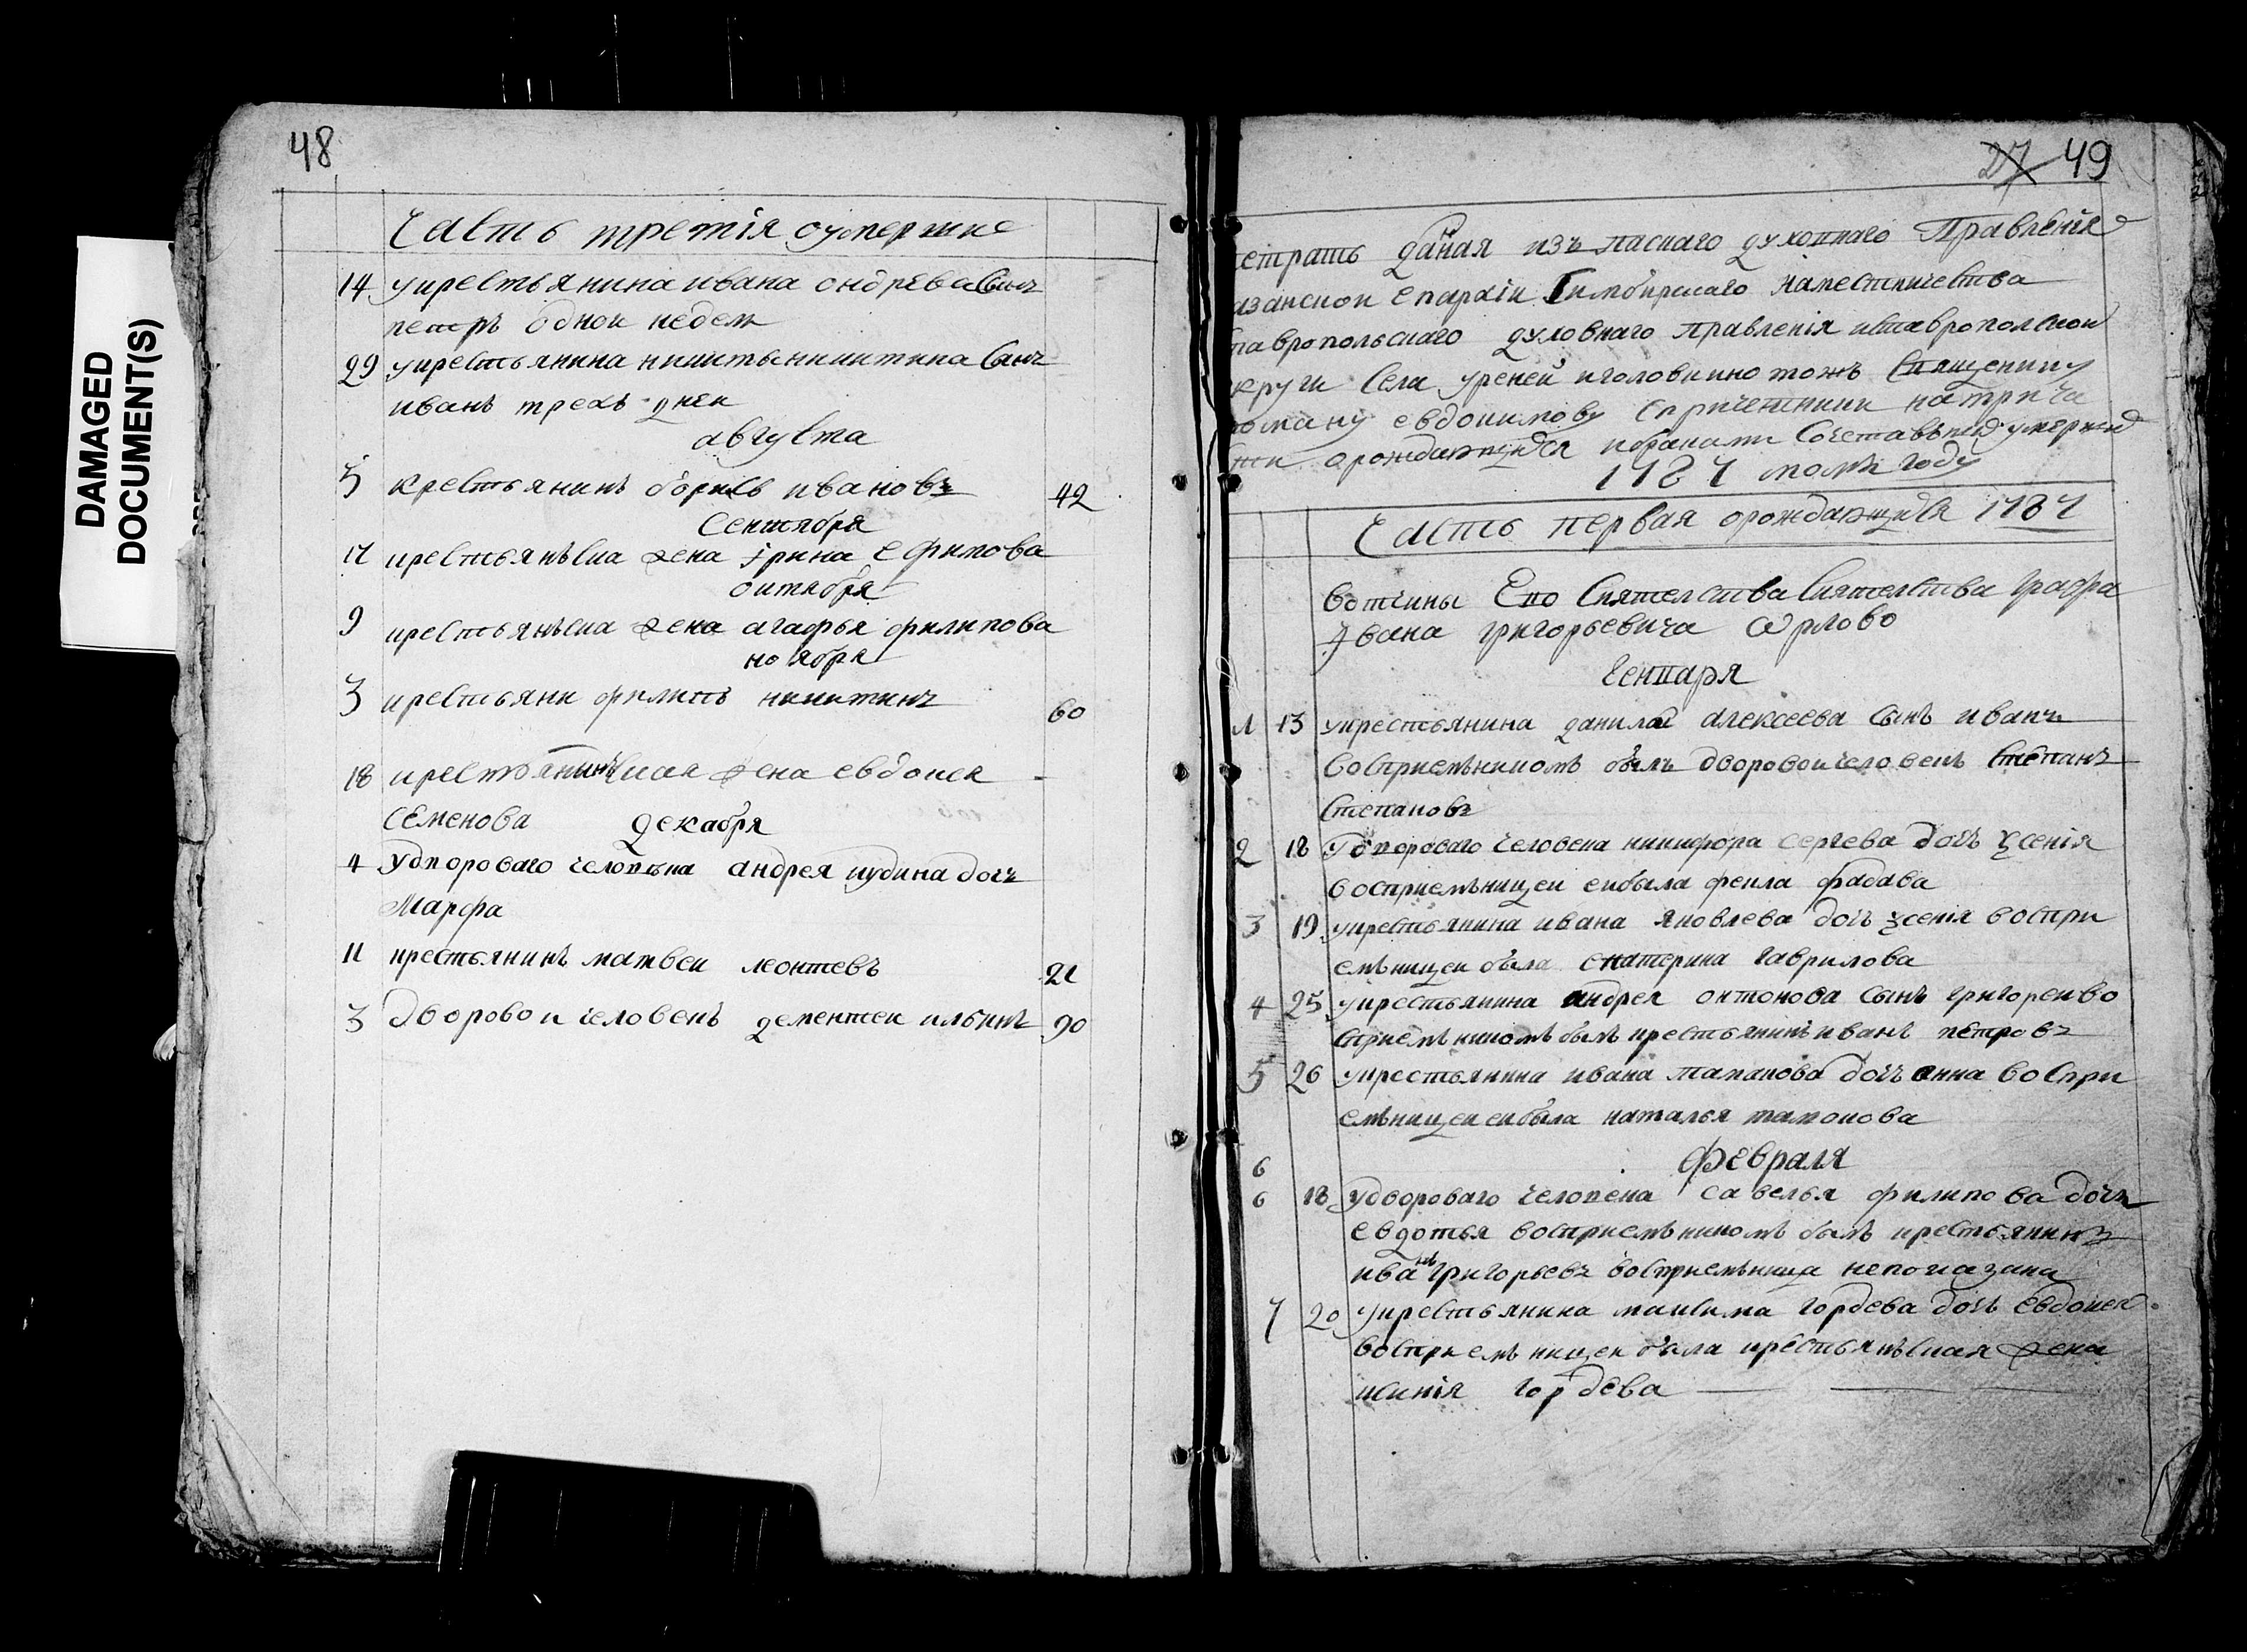 DAMAGED
DOCUMENT(S)
48
Часть третія оумершие
14 укрестьянина ивана ондрева сынъ
петръ однои недели
29 укрестьянина никиты никитина сынъ
иванъ трехъ днеи
августа
5 крестьянинъ борисъ ивановъ 42
сентября
17 крестьянъска жена ірина ефимова
октября
9 крестьянъска жена агафья филипова
ноября
3 крестьяни филипъ никитинъ 60
18 крестьянинъская жена евдокея
семенова декабря
4 удвороваго человека андрея иудина дочъ
Марфа
11 крестьянинъ матвеи леонтевъ 21
3 дворовои человекъ дементеи ильинъ 90
27 49
даная изъ духовнаго Правленія
азанскои епархіи Симбирскаго наместничества
тавропольскаго духовнаго правленія иставропольскои
круги села уреней иголовкино тожъ священнику
роману евдокимову спричетники натри ча
сти орождающихся ибраками сочетавъшихся умершихъ
1787 году
Часть первая орождающихся 1787
вотчины Его Сиятелства Сиятелства графа
Jвана григорьевича Ѡрлово
Генваря
1 13 укрестьянина данилы алексеева сынъ иванъ
восприемъникомъ былъ дворовои человекъ степанъ
степановъ
2 18 Удвороваго человека никифора сергева дочъ ксенія
восприемъницеи еибыла
3 19 укрестьянина ивана яковлева дочъ ксенія воспри
емъницеи была екатерина гаврилова
4 25 укрестьянина андрея онтонова сынъ григореи во
сприемъникомъ былъ крестьянинъ иванъ петровъ
5 26 укрестьянина ивана дочъ анна воспри
емъницеи еибыла наталья
6 февраля
6 18 удвороваго человека савелья филипова дочъ
евдотья восприемъникомъ былъ крестьянинъ
иванъ григорьевъ восприемъница непоказана
7 20 укрестьянина максима гордева дочъ евдокея
восприемъницеи была крестьянъская жена
ксинія гордева